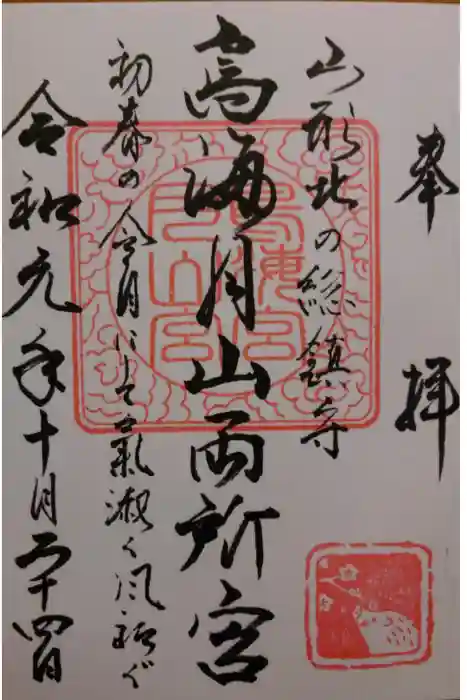 奉拝
山形北の総鎮守
鳥海月山両所宮
初春の令月にして気淑く風和ぎ
令和元年十月二十四日